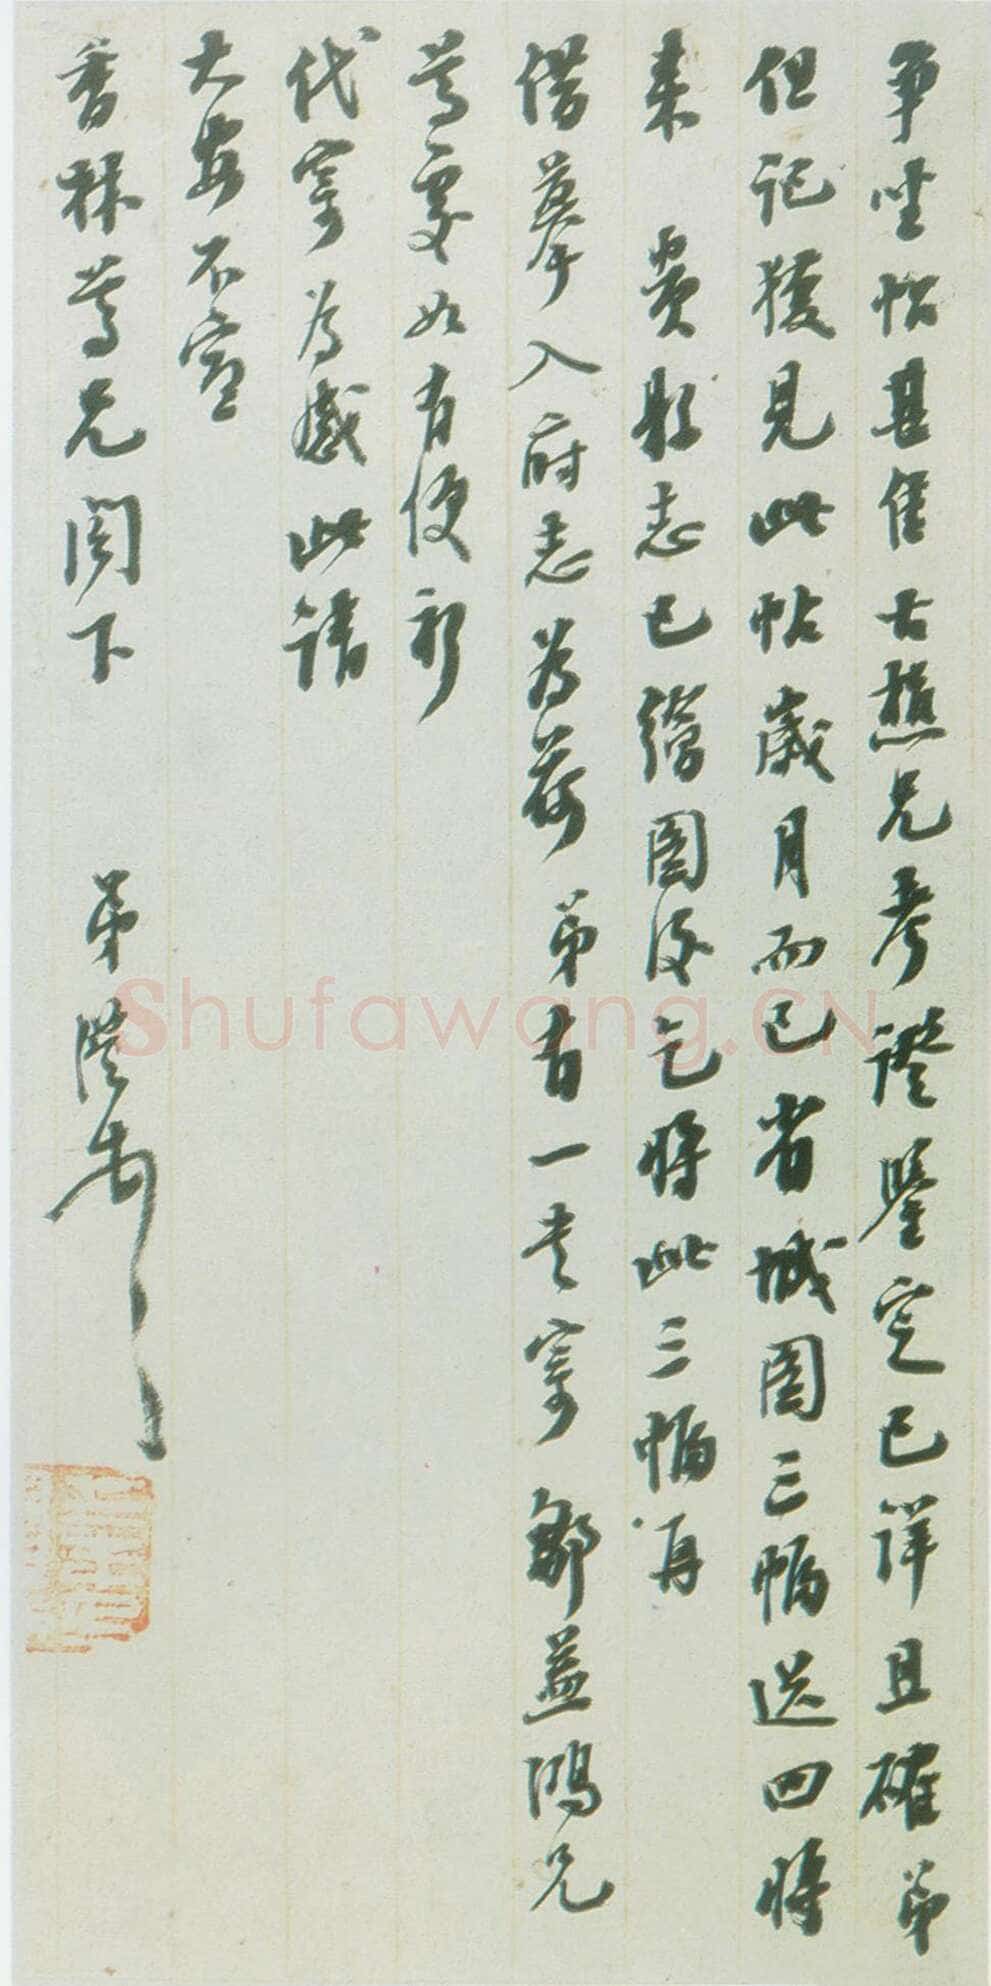 争坐帖甚佳古樵兄考證鑒定已詳且確弟
但記獲見此帖歲月而已省城圖三幅送回將
來 貴縣志已繪圖後乞將此三幅再
借摹入府志為荷弟有一書寄 鄒益鴻兄
尊處如有便祈
代寄為感此請
大安不宣
香林尊兄閣下 弟澧
Shufawang.CN